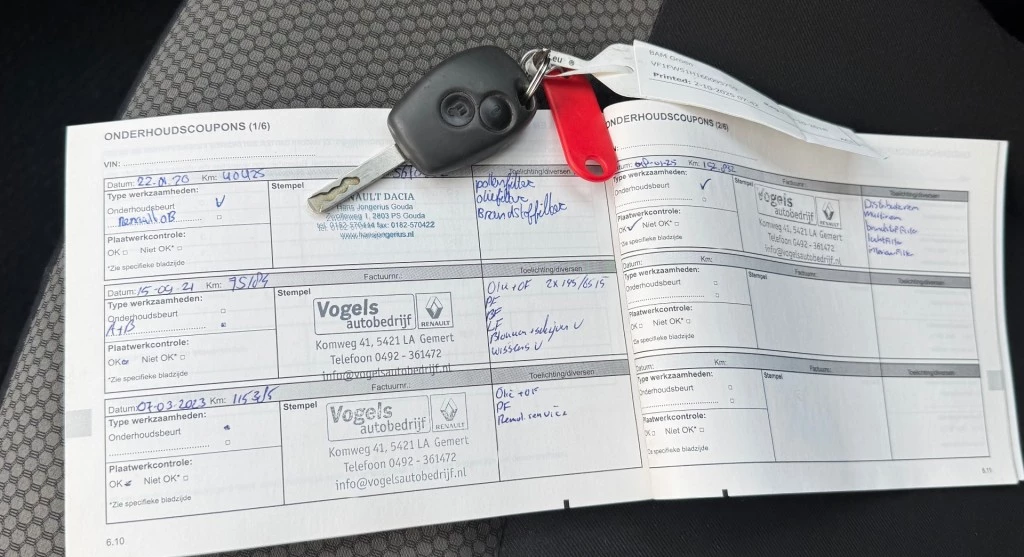 BAM Groen
Printed: 2-10-2025
.eu
ONDERHOUDSCOUPONS (1/6)
VIN:
Datum: 22.01.20 Km: 40425
Type werkzaamheden:
Onderhoudsbeurt
Renault OB
Plaatwerkcontrole:
OK Niet OK*
*Zie specifieke bladzijde
Stempel
RENAULT DACIA
Hans Jongerius Gouda
1, 2803 PS Gouda
tel. 0182-570444 fax: 0182-570422
www.hansjongerius.nl
Toelichting/diversen
pollenfilter
oliefilter
Brandstoffilter
Datum: 15-04-21 Km:
Type werkzaamheden:
Onderhoudsbeurt
A+B
Plaatwerkcontrole:
OK Niet OK*
*Zie specifieke bladzijde
Stempel
Factuurnr.:
Vogels
autobedrijf
RENAULT
Komweg 41, 5421 LA Gemert
Telefoon 0492 - 361472
info@vogelsautobedrijf.nl
Toelichting/diversen
Olie + OF 2x 195/65 15
PF
BF
LF
wissers
Datum: 07-03-2023 Km: 115315
Type werkzaamheden:
Onderhoudsbeurt
Plaatwerkcontrole:
OK Niet OK*
*Zie specifieke bladzijde
Stempel
Factuurnr.:
Vogels
autobedrijf
RENAULT
Komweg 41, 5421 LA Gemert
Telefoon 0492 - 361472
info@vogelsautobedrijf.nl
Toelichting/diversen
Olie + OF
PF
Remol. service
6.10
ONDERHOUDSCOUPONS (2/6)
Km:
Type werkzaamheden:
Onderhoudsbeurt
Plaatwerkcontrole:
OK Niet OK*
*Zie specifieke bladzijde
Stempel
Factuurnr.:
Vogels
autobedrijf
RENAULT
Komweg 41, 5421 LA Gemert
Telefoon 0492-361472
info@vogelsautobedrijf.nl
Toelichting/diversen
Distributieriem
multiriem
brandstoffilter
luchtfilter
interieurfilter
Datum: Km:
Type werkzaamheden:
Onderhoudsbeurt
Plaatwerkcontrole:
OK Niet OK*
*Zie specifieke bladzijde
Stempel
Factuurnr.:
Toelichting/diversen
Datum: Km:
Type werkzaamheden:
Onderhoudsbeurt
Plaatwerkcontrole:
OK Niet OK*
*Zie specifieke bladzijde
Stempel
Factuurnr.:
Toelichting/diversen
6.11